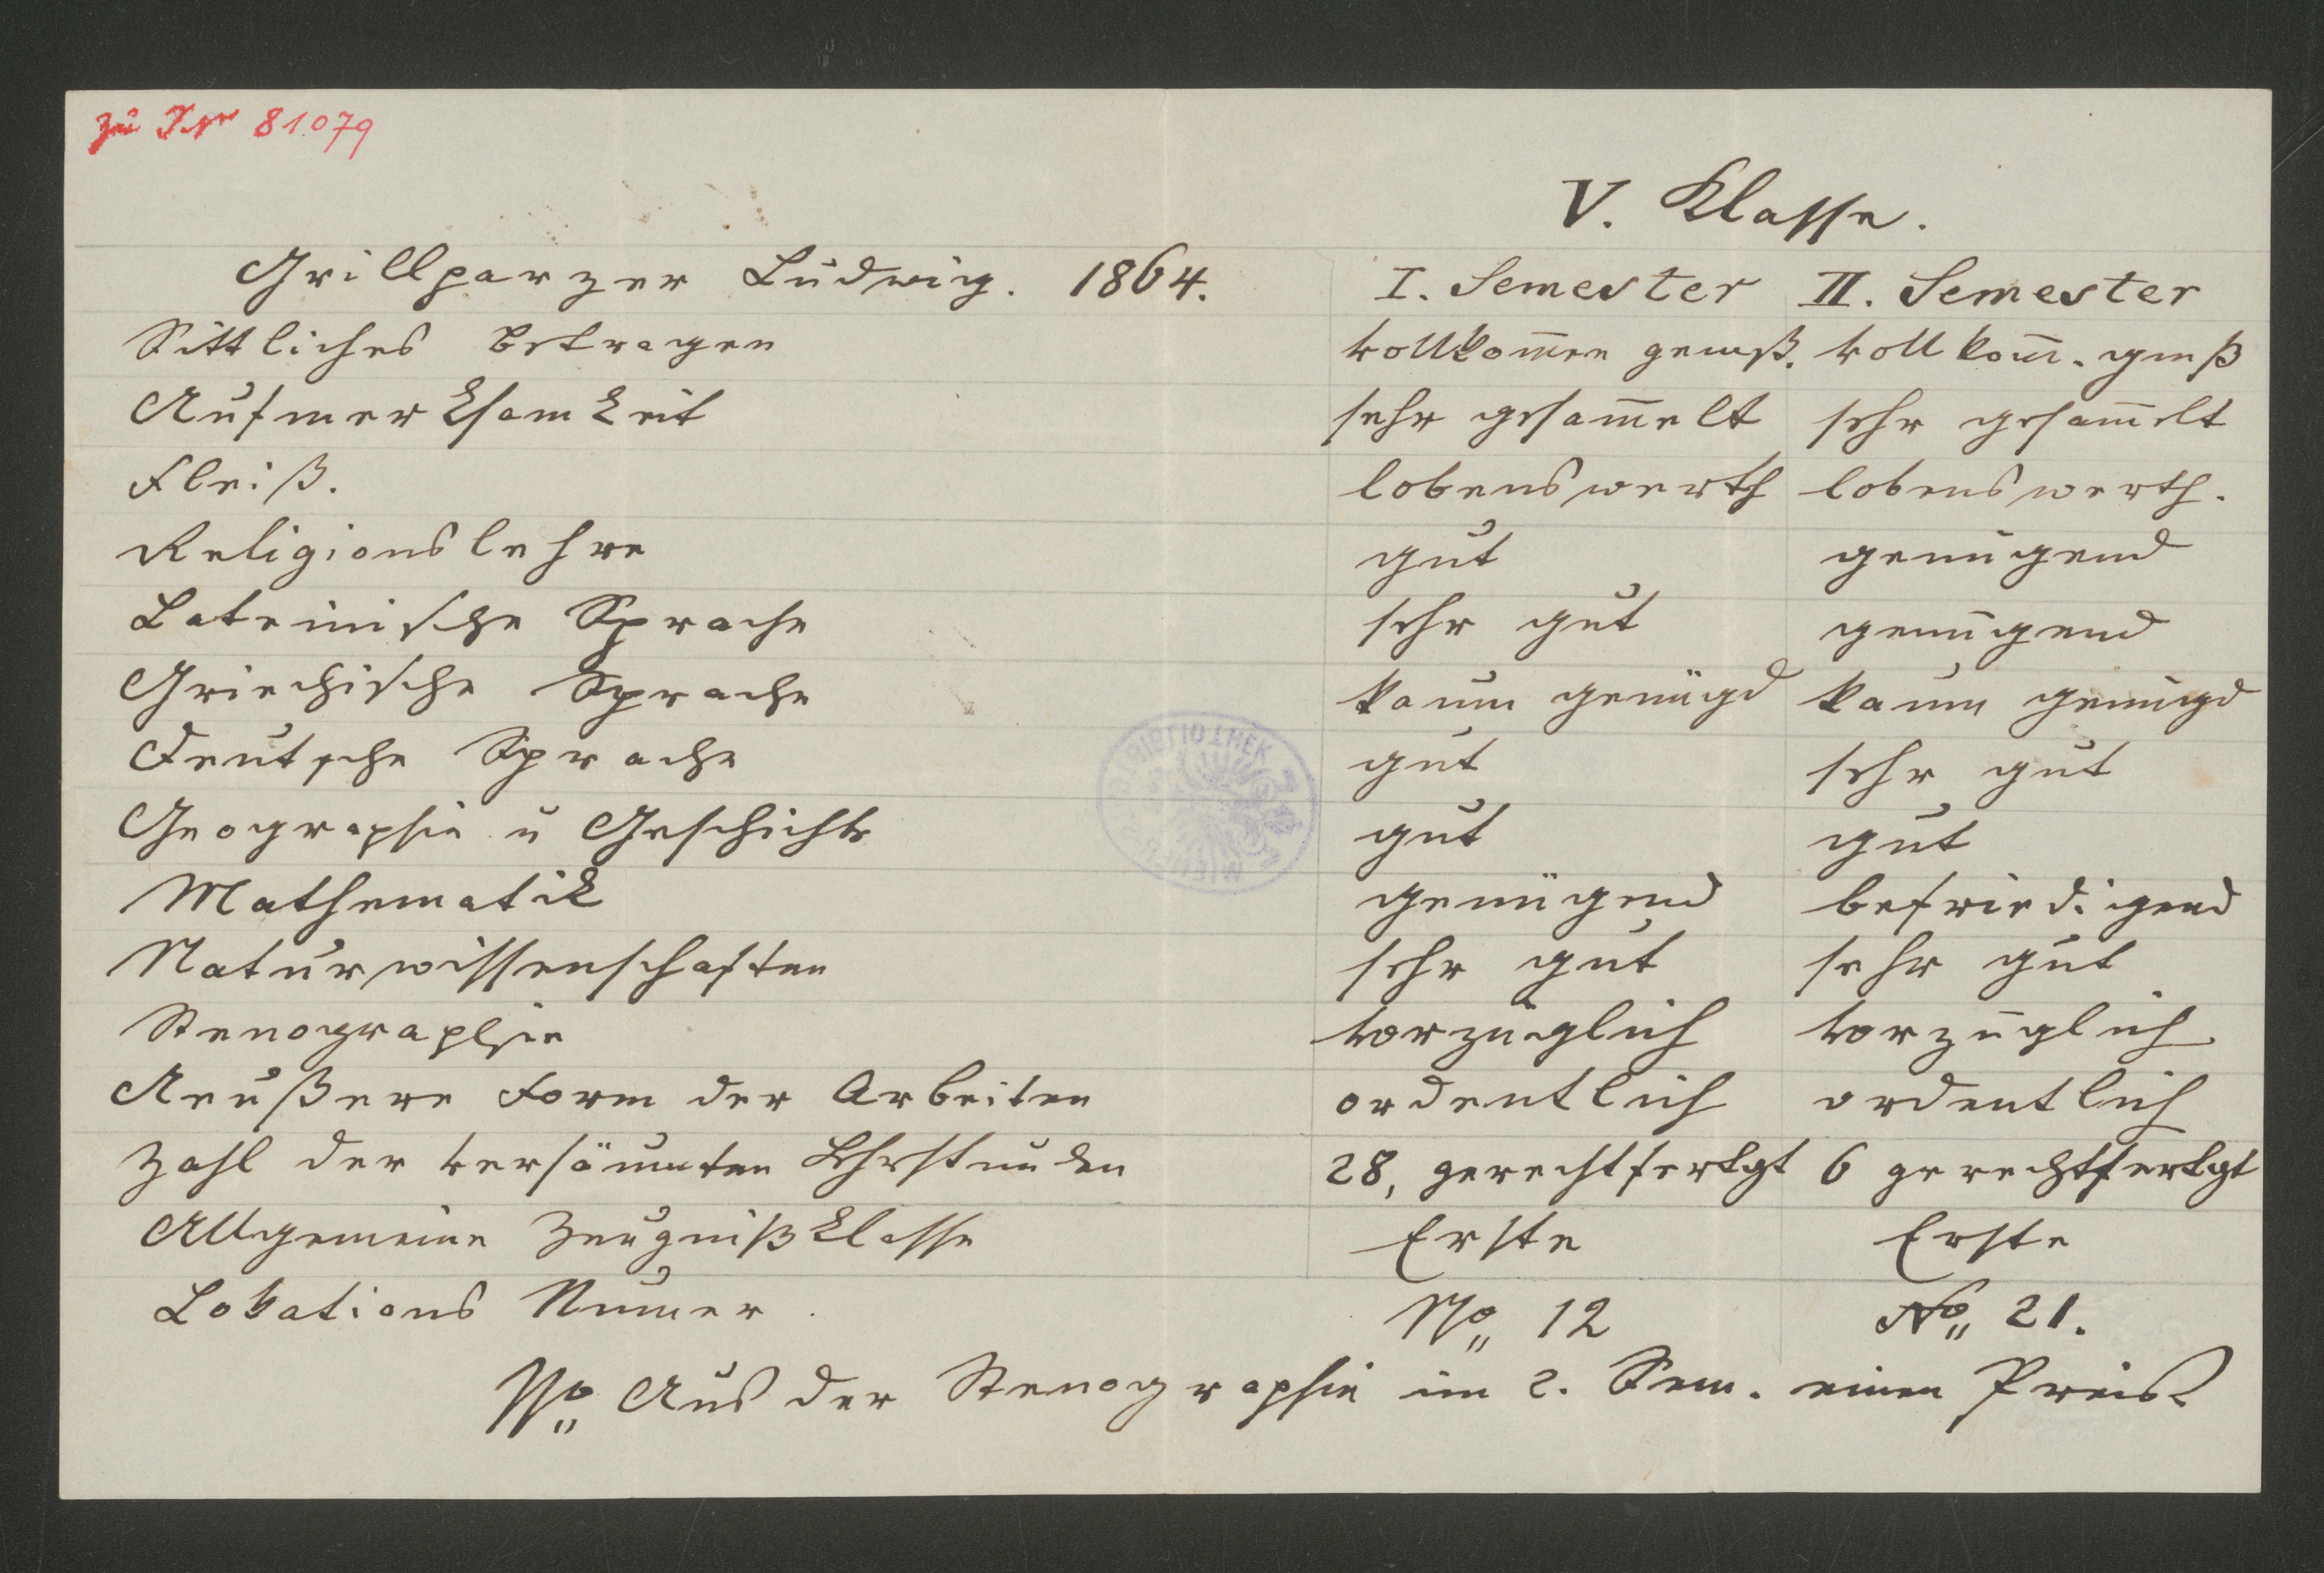 zu JNr 81.079
V. Klasse.
Grillparzer Ludwig. 1864. I. Semester II. Semester
Sittliches Betragen vollkom̄en gemß. vollkom̄. gmß
Aufmerksamkeit sehr gesam̄elt sehr gesam̄elt
Fleiß. lobenswerth lobenswerth.
Religionslehre gut genügend
Lateinische Sprache sehr gut genügend
Griechische Sprache kaum genügd kaum genügd
Deutsche Sprache gut sehr gut
Geographie u Geschichte gut gut
Mathematik genügend befriedigend
Naturwissenschaften sehr gut sehr gut
Stenographie vorzüglich vorzüglich
Aeußere Form der Arbeiten ordentlich ordentlich
Zahl der versäumten Lehrstunden 28, gerechtfertgt 6 gerechtfertgt
Allgemeine Zeugnißklasse Erste Erste
Lokations Numer. No 12 No 21.
Aus der Stenographie im 2. Sem. einen Preis
BIBLIOTHEK
WIEN